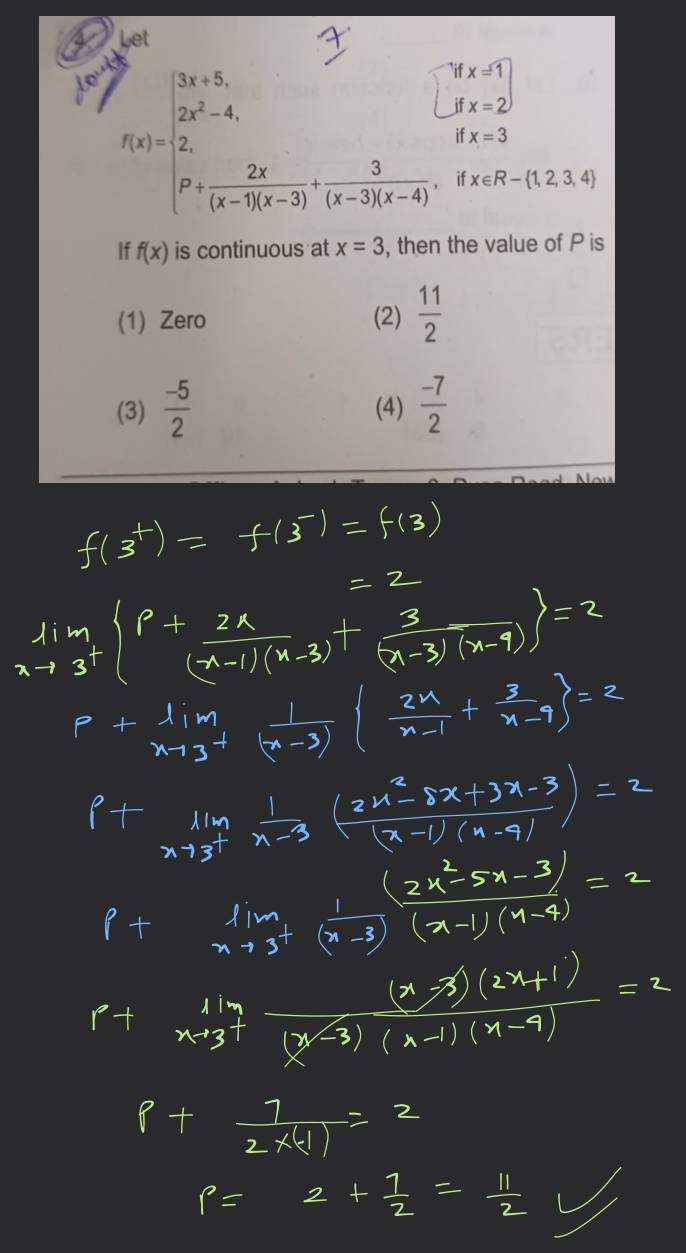 4. Let 7
doubt
3x + 5, if x = 1
2x² – 4, if x = 2
f(x) = 2, if x = 3
P + 2x/((x – 1)(x – 3)) + 3/((x – 3)(x – 4)), if x∈R – {1, 2, 3, 4}
If f(x) is continuous at x = 3, then the value of P is
(1) Zero (2) 11/2
(3) –5/2 (4) –7/2
f(3⁺) = f(3⁻) = f(3)
= 2
lim x→3⁺ { P + 2x/((x–1)(x–3)) + 3/((x–3)(x–4)) } = 2
P + lim x→3⁺ 1/(x–3) { 2x/(x–1) + 3/(x–4) } = 2
P + lim x→3⁺ 1/(x–3) ((2x²–8x+3x–3)/((x–1)(x–4))) = 2
P + lim x→3⁺ 1/(x–3) (2x²–5x–3)/((x–1)(x–4)) = 2
P + lim x→3⁺ (x–3)(2x+1)/((x–3)(x–1)(x–4)) = 2
P + 7/(2×(-1)) = 2
P = 2 + 7/2 = 11/2